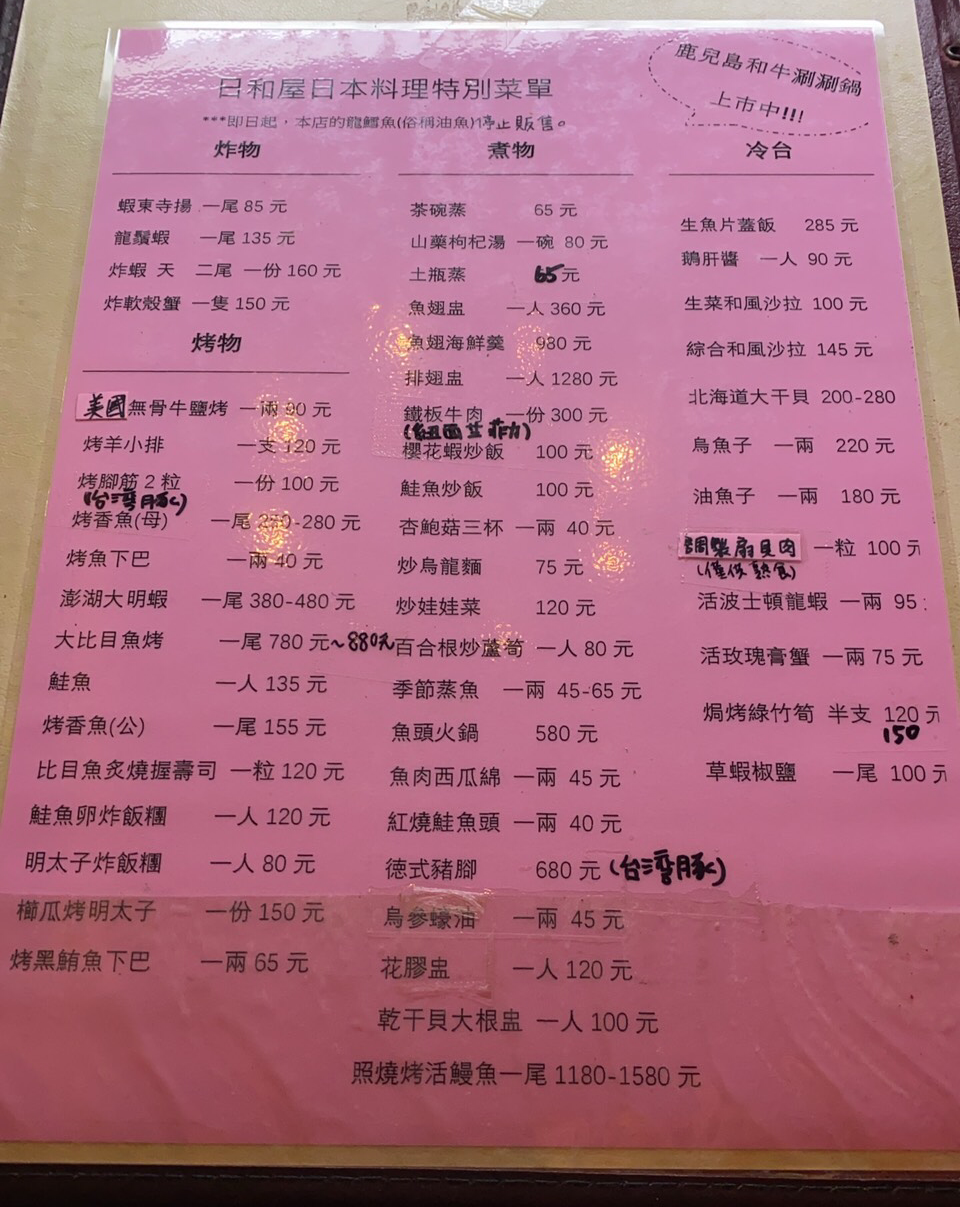 鹿兒島和牛涮涮鍋
上市中!!!
日和屋日本料理特別菜單
***即日起，本店的龍鱈魚(俗稱油魚)停止販售。
炸物
蝦東寺揚 一尾 85 元
龍鬚蝦 一尾 135 元
炸蝦 天 二尾 一份 160 元
炸軟殼蟹 一隻 150 元
烤物
美國無骨牛鹽烤 一兩 90 元
烤羊小排 一支 120 元
烤腳筋 2 粒 一份 100 元
(台湾豚)
烤香魚(母) 一尾 -280 元
烤魚下巴 一兩 40 元
澎湖大明蝦 一尾 380-480 元
大比目魚烤 一尾 780 元~880元
鮭魚 一人 135 元
烤香魚(公) 一尾 155 元
比目魚炙燒握壽司 一粒 120 元
鮭魚卵炸飯糰 一人 120 元
明太子炸飯糰 一人 80 元
櫛瓜烤明太子 一份 150 元
烤黑鮪魚下巴 一兩 65 元
煮物
茶碗蒸 65 元
山藥枸杞湯 一碗 80 元
土瓶蒸 65元
魚翅盅 一人 360 元
魚翅海鮮羹 980 元
排翅盅 一人 1280 元
鐵板牛肉 一份 300 元
(紐西兰菲力)
櫻花蝦炒飯 100 元
鮭魚炒飯 100 元
杏鮑菇三杯 一兩 40 元
炒烏龍麵 75 元
炒娃娃菜 120 元
百合根炒蘆筍 一人 80 元
季節蒸魚 一兩 45-65 元
魚頭火鍋 580 元
魚肉西瓜綿 一兩 45 元
紅燒鮭魚頭 一兩 40 元
德式豬腳 680 元 (台湾豚)
烏參蠔油 一兩 45 元
花膠盅 一人 120 元
乾干貝大根盅 一人 100 元
照燒烤活鰻魚一尾 1180-1580 元
冷台
生魚片蓋飯 285 元
鵝肝醬 一人 90 元
生菜和風沙拉 100 元
綜合和風沙拉 145 元
北海道大干貝 200-280
烏魚子 一兩 220 元
油魚子 一兩 180 元
調製扇貝肉 一粒 100 元
(僅供熟食)
活波士頓龍蝦 一兩 95
活玫瑰膏蟹 一兩 75 元
焗烤綠竹筍 半支 120 元
150
草蝦椒鹽 一尾 100 元